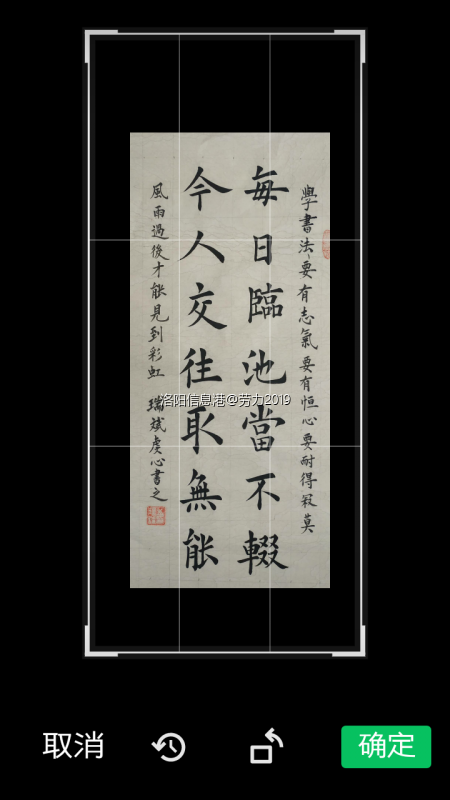 學書法要有志氣要有恒心要耐得寂莫
每日臨池當不輟
今人交往取無能
風雨過後才能見到彩虹 瑞斌虔心書之
洛阳信息港@劳力2019
取消
确定